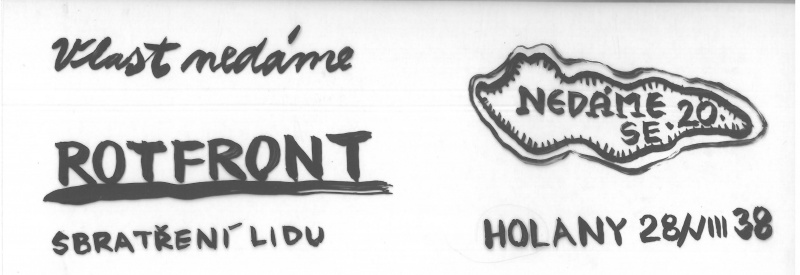 Vlast nedáme
ROTFRONT
SBRATŘENÍ LIDU
NEDÁME
SE. 20.
HOLANY 28/VIII 38